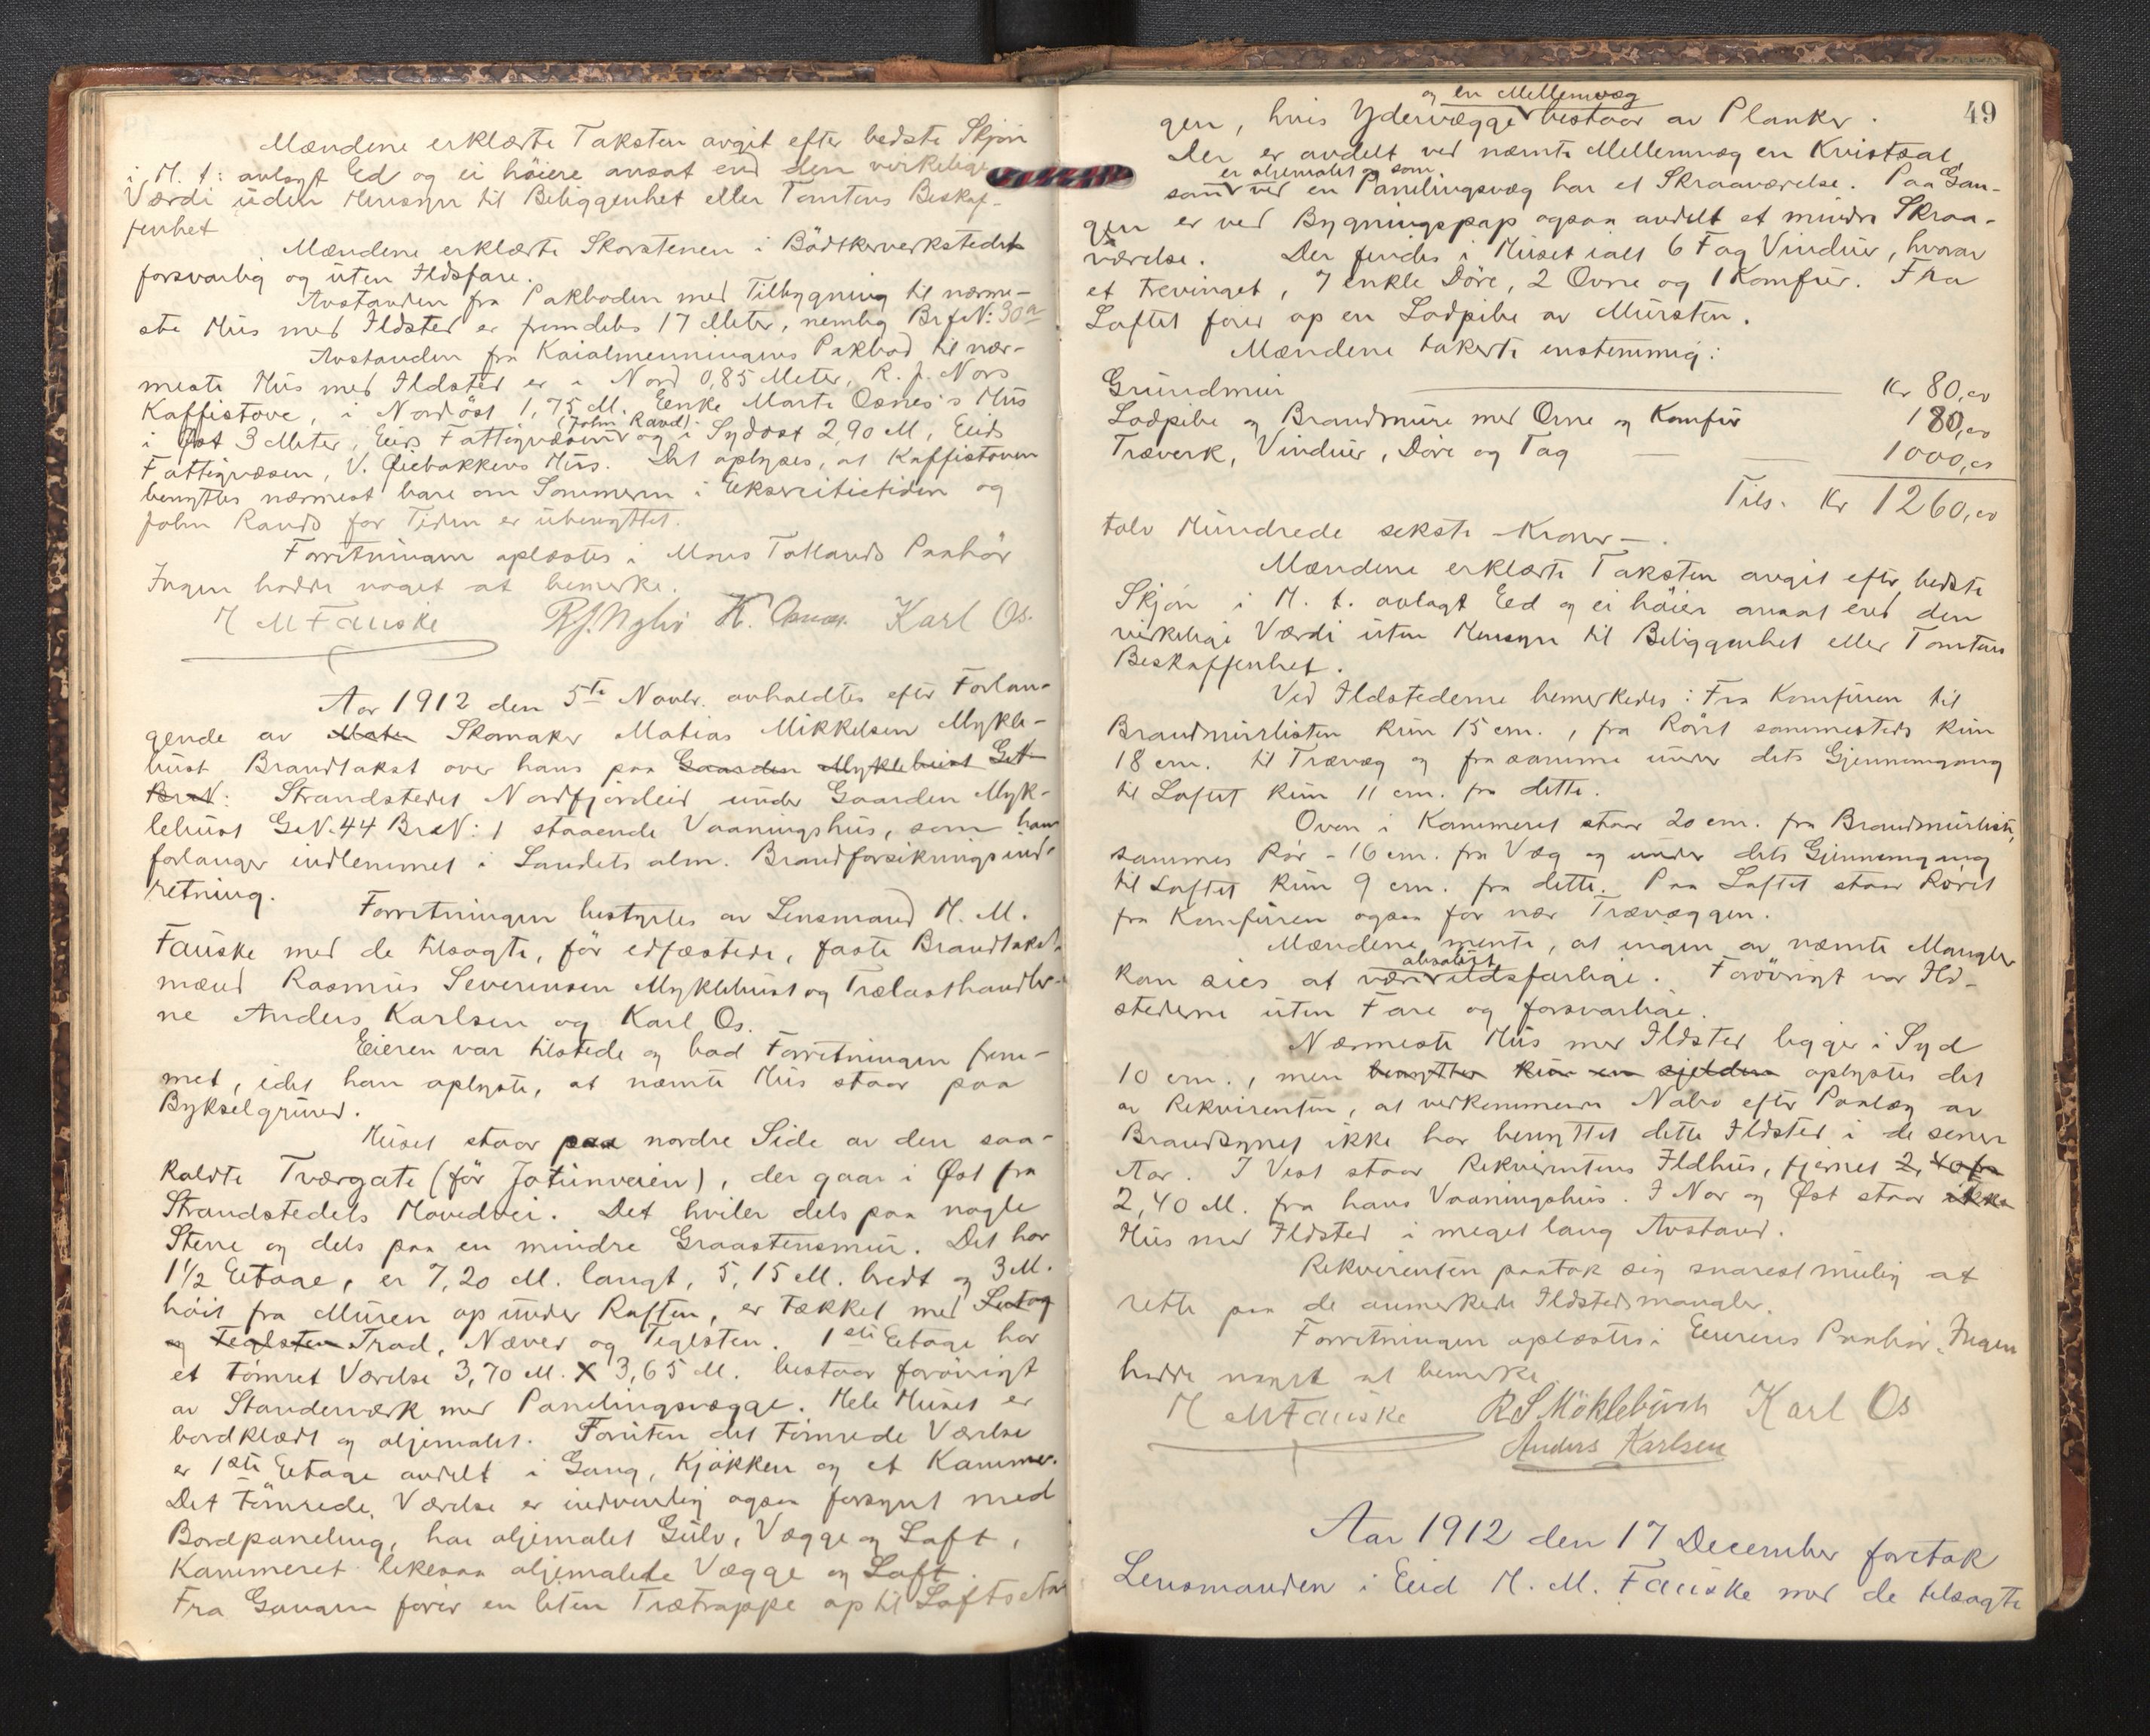 Mændene erklærte Taksten avgit efter bedste Skjön
i H. t. avlagt Ed og ei höiere ansat end den virkelige
Værdi uden Hensyn til Beliggenhet eller Tomtens Beskaf-
fenhet
Mændene erklærte Skorstenen i Bödtkerverkstedet
forsvarlig og uten Ildsfare.
Avstanden fra Pakboden med Tilbygning til nærme-
ste Hus med Ildsted er fremdeles 17 Meter, nemlig BrfN: 30a
Avstanden fra Kaialmenningens Pakbod til nær-
meste Hus med Ildsted er i Nord 0,85 Meter, R. J. Nors
Kaffistove, i Nordöst 1,75 M. Enke Marte Osnes's Hus
i Öst 3 Meter, Eids Fattigvæsen (John Rand) og i Sydost 2,90 M, Eids
Fattigvæsen, V. Øiebakkens Hus. Det oplyses, at Kaffistoven
benyttes nærmest bare om Sommeren i Eksercitietiden og
John Rands for Tiden er ubenyttet.
Forretningen oplæstes i Mons Totlands Paahör
Ingen hadde noget at bemerke.
H M Fauske R.J. Nylid K. Osnes. Karl Os.
Aar 1912 den 5te Novbr. avholdtes efter Forlan-
gende av Mater Skomaker Matias Mikkelsen Mykle-
bust Brandtakst over hans paa Gaarden Myklebust GN
BrN: Strandstedet Nordfjordeid under Gaarden Myk-
lebust GN. 44 BrN: 1 staaende Vaaningshus, som han
forlanger indlemmet i Landets alm. Brandforsikringsind-
retning.
Forretningen bestyrtes av Lensmand H. M.
Fauske med de tilsagte, för edfæstede, faste Brandtakst-
mænd Rasmus Severinsen Myklebust og Trælasthandler-
ne Anders Karlsen og Karl Os.
Eieren var tilstede og bad Forretningen frem-
met, idet han oplyste, at nævnte Hus staar paa
Bykselgrund.
Huset staar paa nordre Side av den saa-
kaldte Tværgate (för Jotunveien), der gaar i Øst fra
Strandstedets Hovedvei. Det hviler dels paa nogle
Stene og dels paa en mindre Graastensmur. Det har
1 1/2 Etage, er 7,20 M. langt, 5,15 M. bredt og 3 M.
höit fra Muren op under Raften, er tækket med Sutag
og Teglsten Trod, Næver og Teglsten. 1ste Etage har
et tömret Værelse 3,70 M. X 3,65 M. bestaar forövrigt
av Standerværk med Panelingsvægge. Hele Huset er
bordklædt og oljemalet. Foruten det tömrede Værelse
er 1ste Etage avdelt i Gang, Kjökken og et Kammer.
Det tömrede Værelse er indvendig ogsaa forsynt med
Bordpaneling, har oljemalet Gulv, Vægge og Loft,
Kammeret likesaa oljemalede Vægge og Loft.
Fra Gangen förer en liten Trætrappe op til Loftseta-
49
og en Mellemvæg
gen, hvis Ydervægge bestaar av Planker.
Der er avdelt ved nævnte Mellemvæg en Kvistsal,
er oljemalet og som
som ved en Panelingsvæg har et Skraaværelse. Paa Gan-
gen er ved Bygningspap ogsaa avdelt et mindre Skraa-
værelse. Der findes i Huset ialt 6 Fag Vinduer, hvorav
et trevinget, 7 enkle Döre, 2 Ovne og 1 Komfur. Fra
Loftet förer op en Lodpibe av Mursten.
Mændene takserte enstemmig:
Grundmur Kr 80,00
Lodpibe og Brandmure med Ovne og Komfur 180,00
Træverk, Vinduer, Döre og Tag — — 1000,00
Tils. Kr 1260,00
tolv Hundrede seksti Kroner —.
Mændene erklærte Taksten avgit efter bedste
Skjön i H. t. avlagt Eed og ei höier ansat end den
virkelige Værdi uten Hensyn til Beliggenhet eller Tomtens
Beskaffenhet.
Ved Ildstederne bemerkedes: Fra Komfuren til
Brandmurlisten kun 15 cm., fra Röret sammesteds kun
18 cm. til Trævæg og fra samme under dets Gjennemgang
til Loftet kun 11 cm. fra dette.
Ovn i Kammeret staar 20 cm. fra Brandmurlisten,
sammes Rör - 16 cm. fra Væg og under dets Gjennemgang
til Loftet kun 9 cm. fra dette. Paa Loftet staar Röret
fra Komfuren ogsaa for nær Trævæggen.
Mændene mente, at ingen av nævnte Mangler
absolut
kan sies at være ildsfarlige. Forövrigt var Ild-
stederne uten Fare og forsvarlige.
Nærmeste Hus med Ildsted ligger i Syd
10 cm., men benyttes kun en sjelden oplystes det
av Rekvirenten, at vedkommende Nabo efter Paalæg av
Brandsynet ikke har benyttet dette Ildsted i de senere
Aar. I Vest staar Rekvirentens Ildhus, fjernet 2,40 fra
2,40 M. fra hans Vaaningshus. I Nor og Øst staar ikke
Hus med Ildsted i meget lang Avstand.
Rekvirenten paatok sig snarest mulig at
rette paa de anmerkede Ildstedsmangler.
Forretningen oplæstes i Eierens Paahör. Ingen
hadde noget at bemerke.
H M Fauske R S Möklebust Karl Os
Anders Karlsen
Aar 1912 den 17 December foretok
Lensmanden i Eid H. M. Fauske med de tilsagte